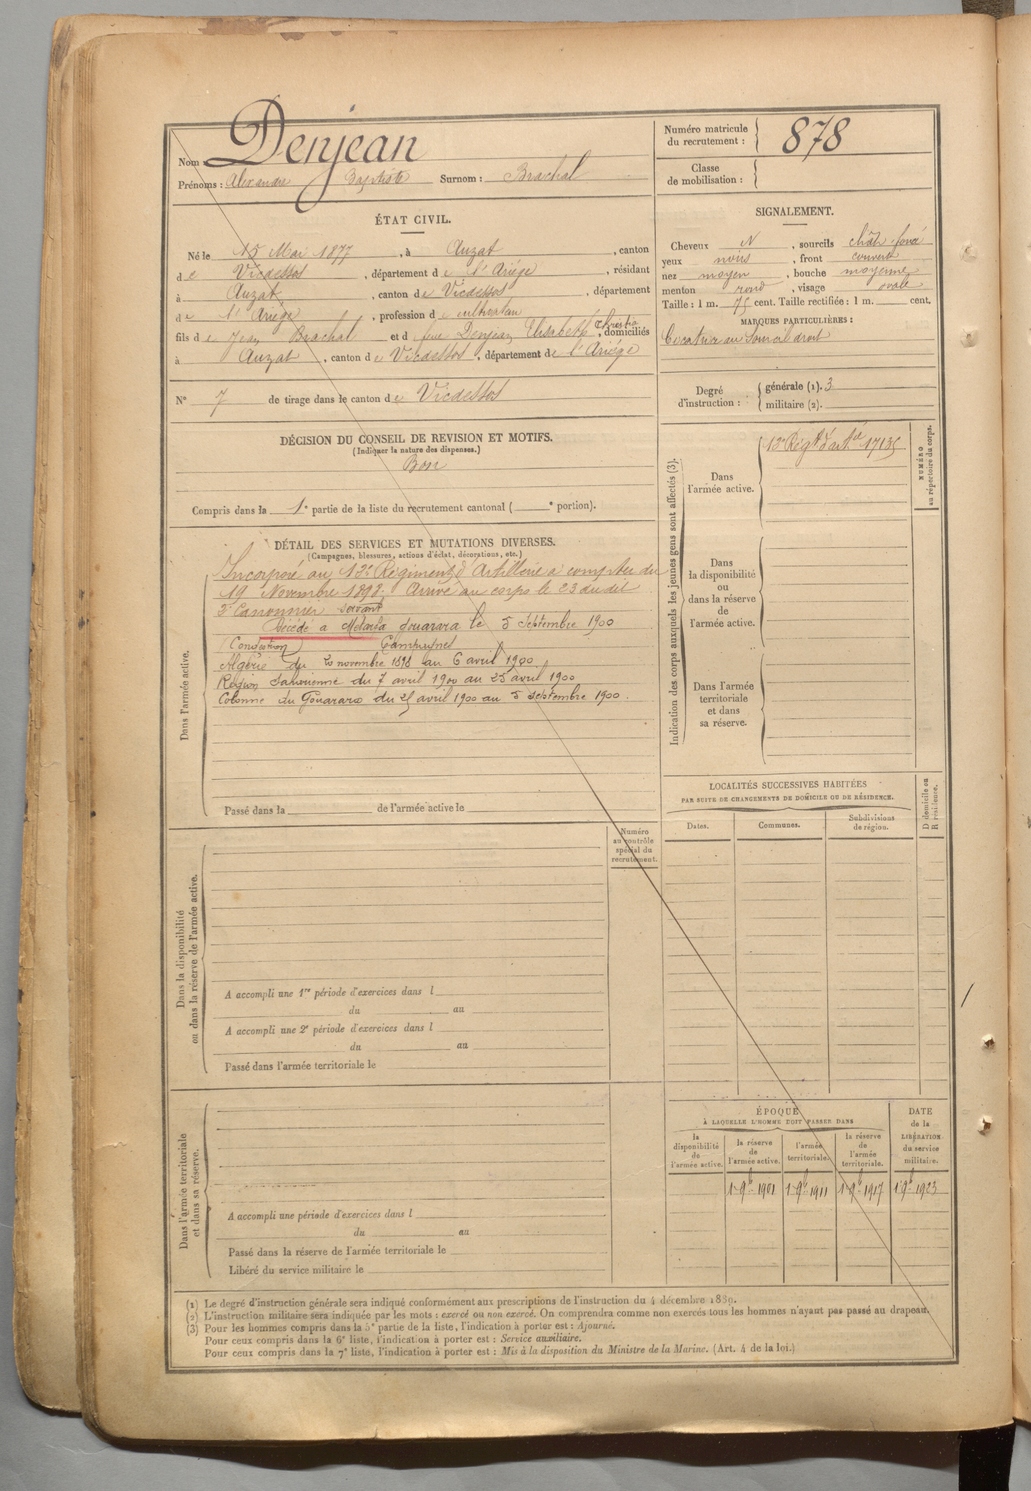 Nom Denjean
Prénoms : Alexandre Baptiste Surnom : Brachal
Numéro matricule du recrutement : 878
Classe de mobilisation :
ÉTAT CIVIL.
Né le 15 Mai 1877, à Auzat, canton
de Vicdessos, département de l'Ariége, résidant
à Auzat, canton de Vicdessos, département
de l'Ariége, profession de cultivateur
fils de Jean Brachal et d feue Denjean Elisabeth Christine, domiciliés
à Auzat, canton de Vicdessos, département de l'Ariége
N° 7 de tirage dans le canton de Vicdessos
SIGNALEMENT.
Cheveux N, sourcils chât. foncé
yeux noirs, front couvert
nez moyen, bouche moyenne
menton rond, visage ovale
Taille : 1 m. 75 cent. Taille rectifiée : 1 m. cent.
MARQUES PARTICULIÈRES :
Cicatrice au Sourcil droit
Degré d'instruction : générale (1). 3
militaire (2).
DÉCISION DU CONSEIL DE REVISION ET MOTIFS.
(Indiquer la nature des dispenses.)
Bon
Compris dans la 1e partie de la liste du recrutement cantonal ( e portion).
DÉTAIL DES SERVICES ET MUTATIONS DIVERSES.
(Campagnes, blessures, actions d'éclat, décorations, etc.)
Dans l'armée active.
Incorporé au 13e Régiment d'Artillerie à compter du
19 Novembre 1898. Arrivé au corps le 23 du dit
2e Canonnier servant
Décédé à Gourara le 5 Septembre 1900
Campagnes
Algérie du 20 novembre 1898 au 6 avril 1900
Région Saharienne du 7 avril 1900 au 25 avril 1900
Colonne du Gouarara du 25 avril 1900 au 5 septembre 1900.
Passé dans la de l'armée active le
Indication des corps auxquels les jeunes gens sont affectés (3).
Dans l'armée active. 13e Régt d'artie 17135
NUMÉRO au répertoire du corps.
Dans la disponibilité ou dans la réserve de l'armée active.
Dans l'armée territoriale et dans sa réserve.
LOCALITÉS SUCCESSIVES HABITÉES
PAR SUITE DE CHANGEMENTS DE DOMICILE OU DE RÉSIDENCE.
Dates. Communes. Subdivisions de région. D domicile ou R résidence.
Numéro au contrôle spécial du recrutement.
Dans la disponibilité ou dans la réserve de l'armée active.
A accompli une 1re période d'exercices dans l
du au
A accompli une 2e période d'exercices dans l
du au
Passé dans l'armée territoriale le
Dans l'armée territoriale et dans sa réserve.
A accompli une période d'exercices dans l
du au
Passé dans la réserve de l'armée territoriale le
Libéré du service militaire le
ÉPOQUE
À LAQUELLE L'HOMME DOIT PASSER DANS
la disponibilité de l'armée active.
la réserve de l'armée active.
l'armée territoriale.
la réserve de l'armée territoriale.
DATE de la LIBÉRATION du service militaire.
1 9b 1901 1 9b 1911 1 9b 1917 1 9b 1923
(1) Le degré d'instruction générale sera indiqué conformément aux prescriptions de l'instruction du 4 décembre 1889.
(2) L'instruction militaire sera indiquée par les mots : exercé ou non exercé. On comprendra comme non exercés tous les hommes n'ayant pas passé au drapeau.
(3) Pour les hommes compris dans la 5e partie de la liste, l'indication à porter est : Ajourné.
Pour ceux compris dans la 6e liste, l'indication à porter est : Service auxiliaire.
Pour ceux compris dans la 7e liste, l'indication à porter est : Mis à la disposition du Ministre de la Marine. (Art. 4 de la loi.)